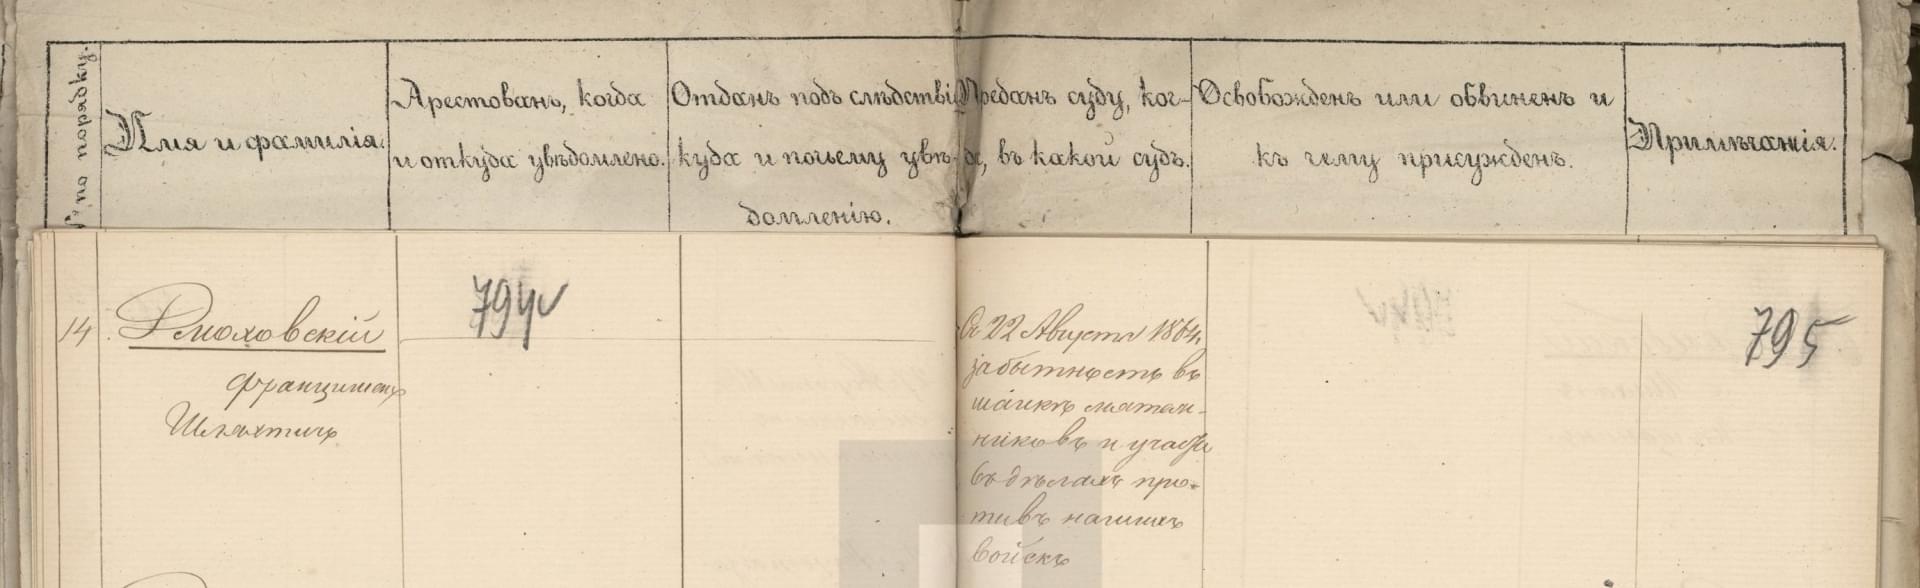 № по порядку.
Имя и фамилія.
Арестованъ, когда
и откуда увѣдомлено.
Отданъ подъ слѣдствіе
куда и почему увѣ-
домленію.
Преданъ суду, ког-
да, въ какой судъ.
Освобожденъ или обвиненъ и
къ чему присужденъ.
Примѣчанія.
14.
Рмоховскій
Францишекъ
Шляхтичъ
794
Съ 22 Августа 1864.
за бытность въ
шайкѣ мятеж-
никовъ и участіе
въ дѣлахъ про-
тивъ нашихъ
войскъ
795